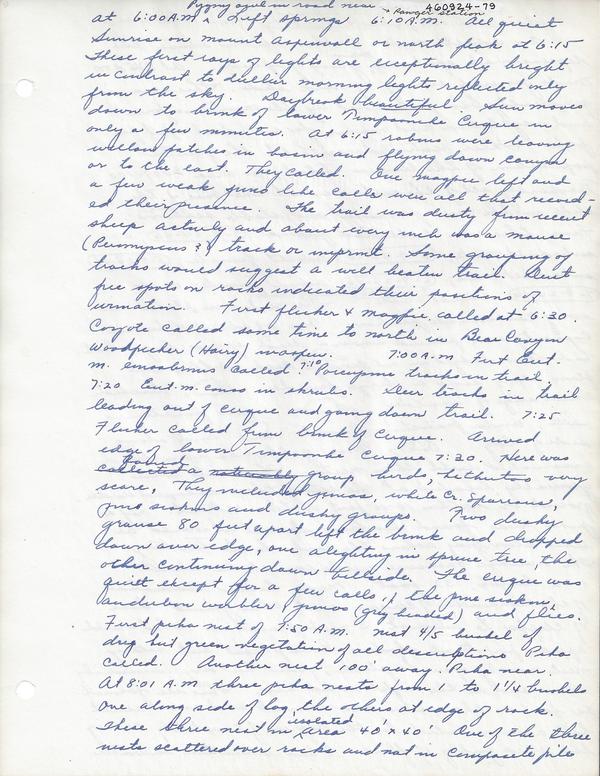 Pygmy owl in road near → Ranger Station 460924-79
at 6:00 A.M. Left springs 6:10 A.M. All quiet
Sunrise on mount Aspenwall or north peak at 6:15
These first rays of lights are exceptionally bright
in contrast to duller morning lights reflected only
from the sky. Daybreak beautiful. Sun moves
down to brink of lower Timpooneke Cirque in
only a few minutes. At 6:15 robins were leaving
willow patches in basin and flying down canyon
or to the east. They called. One magpie left and
a few weak junco like calls were all that record-
ed their presence. The trail was dusty from recent
sheep activity and about every inch was a mouse
(Peromyscus ?) track or imprint. Some grouping of
tracks would suggest a well beaten trail. Dust
free spots on rocks indicated their positions of
urination. First flicker & magpie called at 6:30.
Coyote called some time to north in Bear Canyon
Woodpecker (Hairy) 7:00 A.M. First Eut.
m. called. 7:10 Porcupine tracks in trail,
7:20 Eut. m. cones in shrubs. Deer tracks in trail
leading out of cirque and going down trail. 7:25
Flicker called from brink of cirque. Arrived
edge of lower Timpooneke Cirque 7:30. Here was
found
collected a noticeably group birds, hitherto very
scarce, They included juncos, white Cr. Sparrows,
pine siskins and dusky grouse. Two dusky
grouse 80 feet apart left the brink and dropped
down over edge, one alighting in spruce tree, the
other continuing down hillside. The cirque was
quiet except for a few calls of the pine siskin,
audubon warbler, juncos (grey headed) and flies.
First pika nest of 7:50 A.M. nest 4/5 bushel of
dry but green vegetation of all descriptions Pika
called. Another nest 100' away. Pika near.
At 8:01 A.M three pika nests from 1 to 1¼ bushels
one along side of log, the others at edge of rock.
These three nest in isolated area 40' x 40' One of the three
nests scattered over rocks and not in composite pile